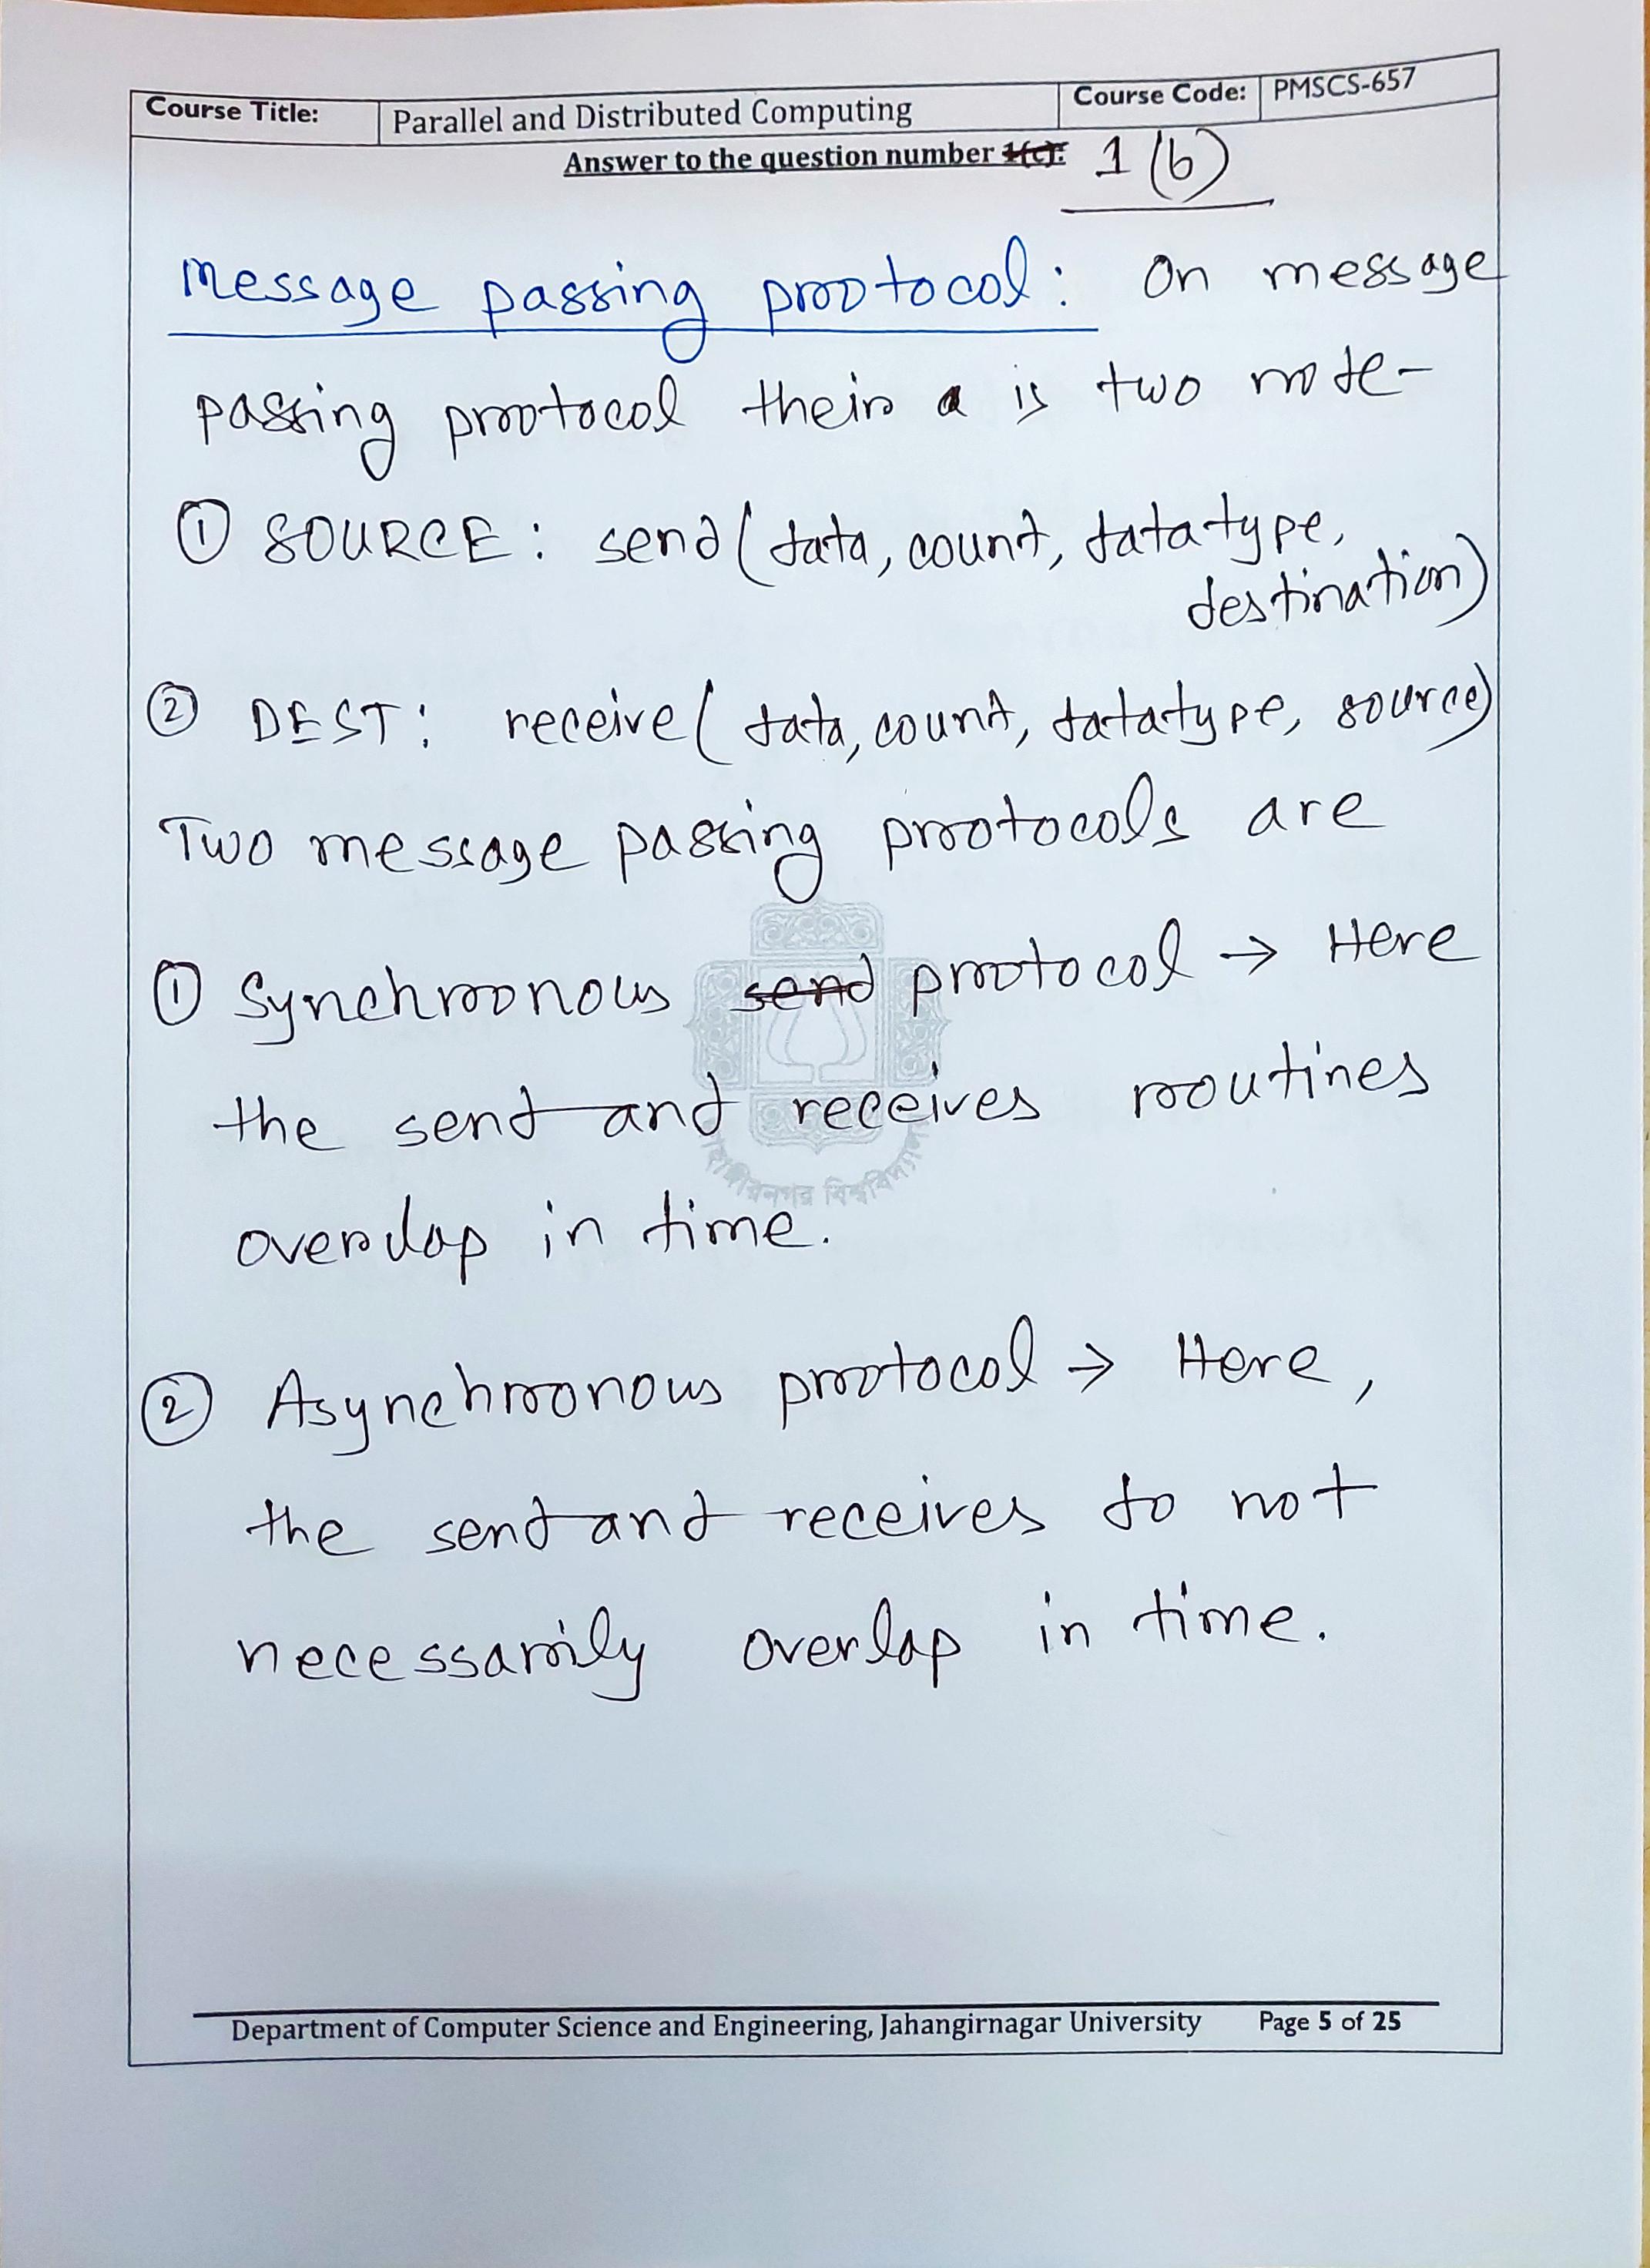 Course Title: Parallel and Distributed Computing Course Code: PMSCS-657
Answer to the question number 1(c): 1 (b)
Message passing protocol: On message
passing protocol their is two note-
① SOURCE: send(data, count, datatype,
destination)
② DEST: receive(data, count, datatype, source)
Two message passing protocols are
① Synchronous send protocol → Here
the send and receives routines
overlap in time.
② Asynchronous protocol → Here,
the send and receives do not
necessarily overlap in time.
Department of Computer Science and Engineering, Jahangirnagar University Page 5 of 25